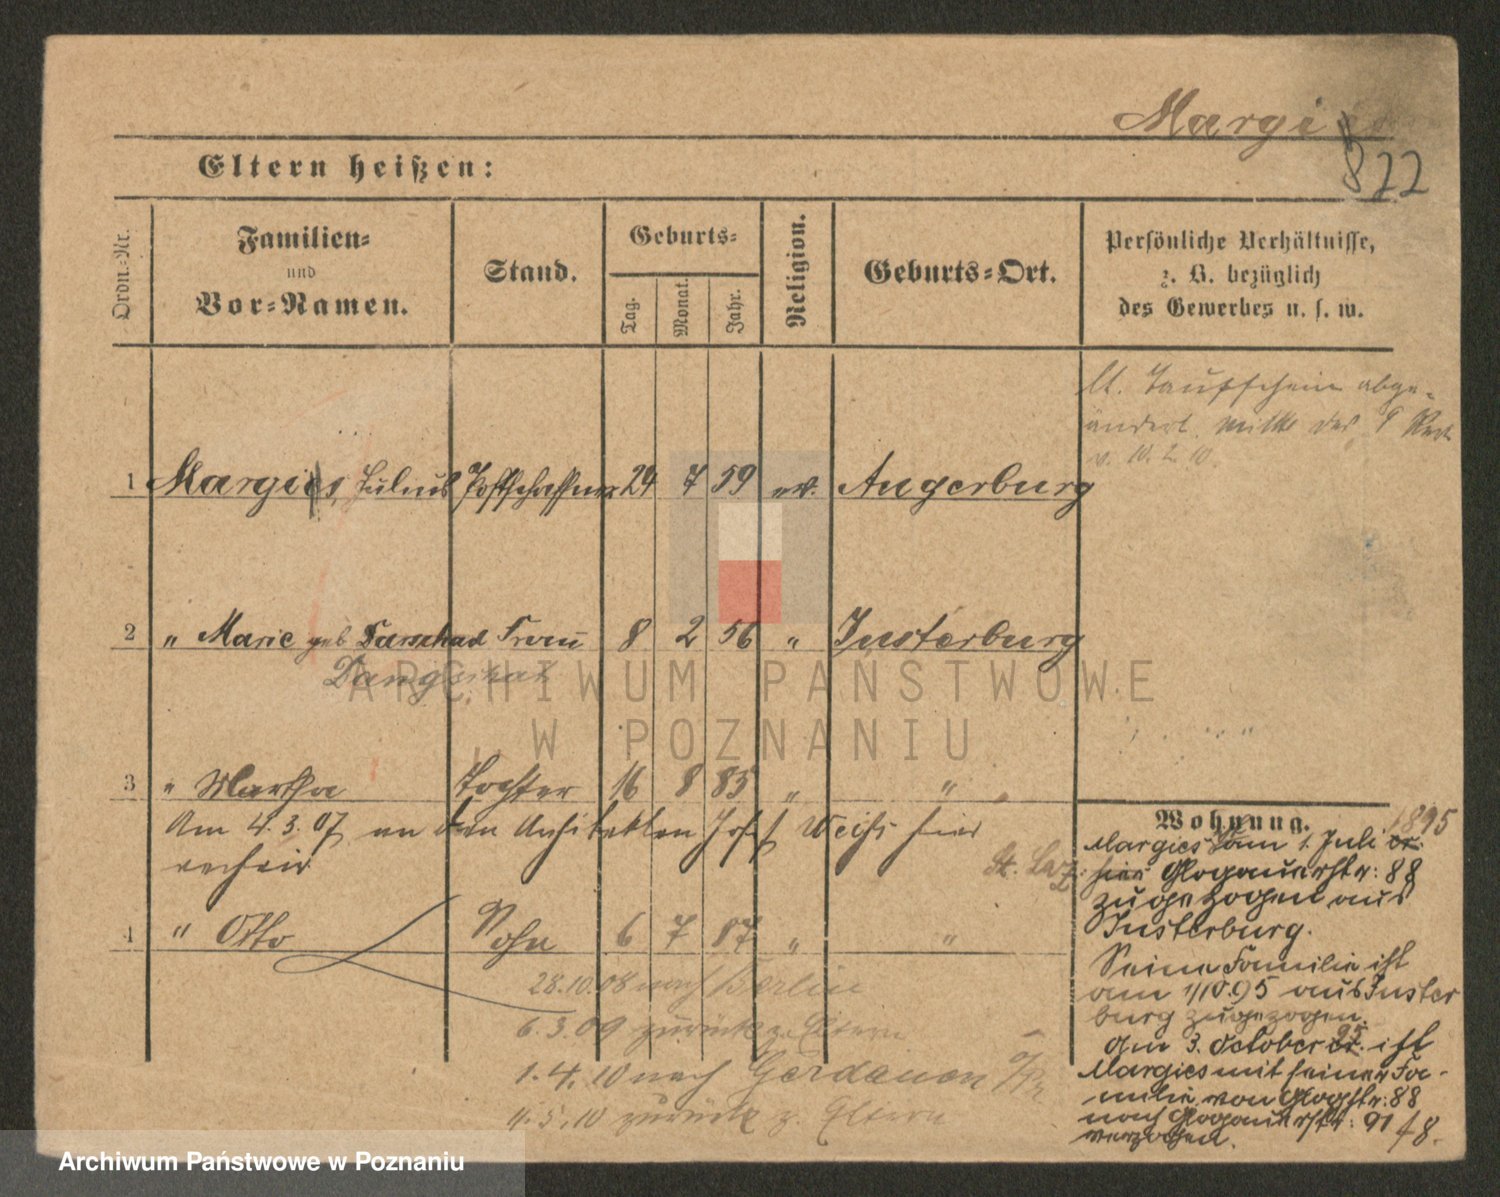 Margies
822
Eltern heißen:
Ordn.-Nr.
Familien-
und
Vor-Namen.
Stand.
Geburts-
Tag.
Monat.
Jahr.
Religion.
Geburts-Ort.
Persönliche Verhältnisse,
z. B. bezüglich
des Gewerbes u. s. w.
lt. Taufschein abge-
ändert
v. 10. 2. 10.
1 Margies, Julius Postschaffner 24 7 59 ev. Angerburg
2 " Marie geb Frau 8 2 56 " Insterburg
3 " Martha Tochter 16 8 85 " "
Am 4.3.07 an den Architekten Weiß hier
4 " Otto Sohn 6 7 87 " "
28.10.08 nach Berlin
6.3.09 zurück z. Eltern
1.4.10 nach Gerdauen
4.5.10 zurück z. Eltern
Wohnung. 1895
Margies am 1. Juli cr.
hier Glogauerstr: 88
zugezogen aus
Insterburg.
Seine Familie ist
am 1/10.95 aus Inster
burg zugezogen.
Am 3. October cr. 95 ist
Margies mit seiner Fa-
milie von Glogstr: 88
nach Glogauerstr: 91
verzogen.
St. Laz:
ARCHIWUM PAŃSTWOWE
W POZNANIU
Archiwum Państwowe w Poznaniu